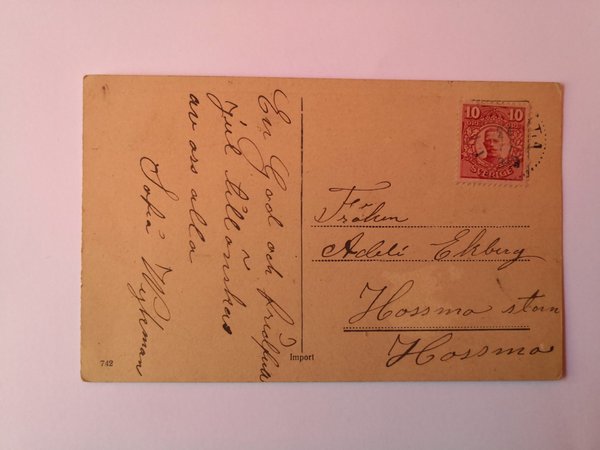 En God och fridfull
Jul tillönskas
av oss alla
Sofia Wykman
742
Import
10 10
SVERIGE
Fröken
Adéli Ekberg
Hossmo storn
Hossmo